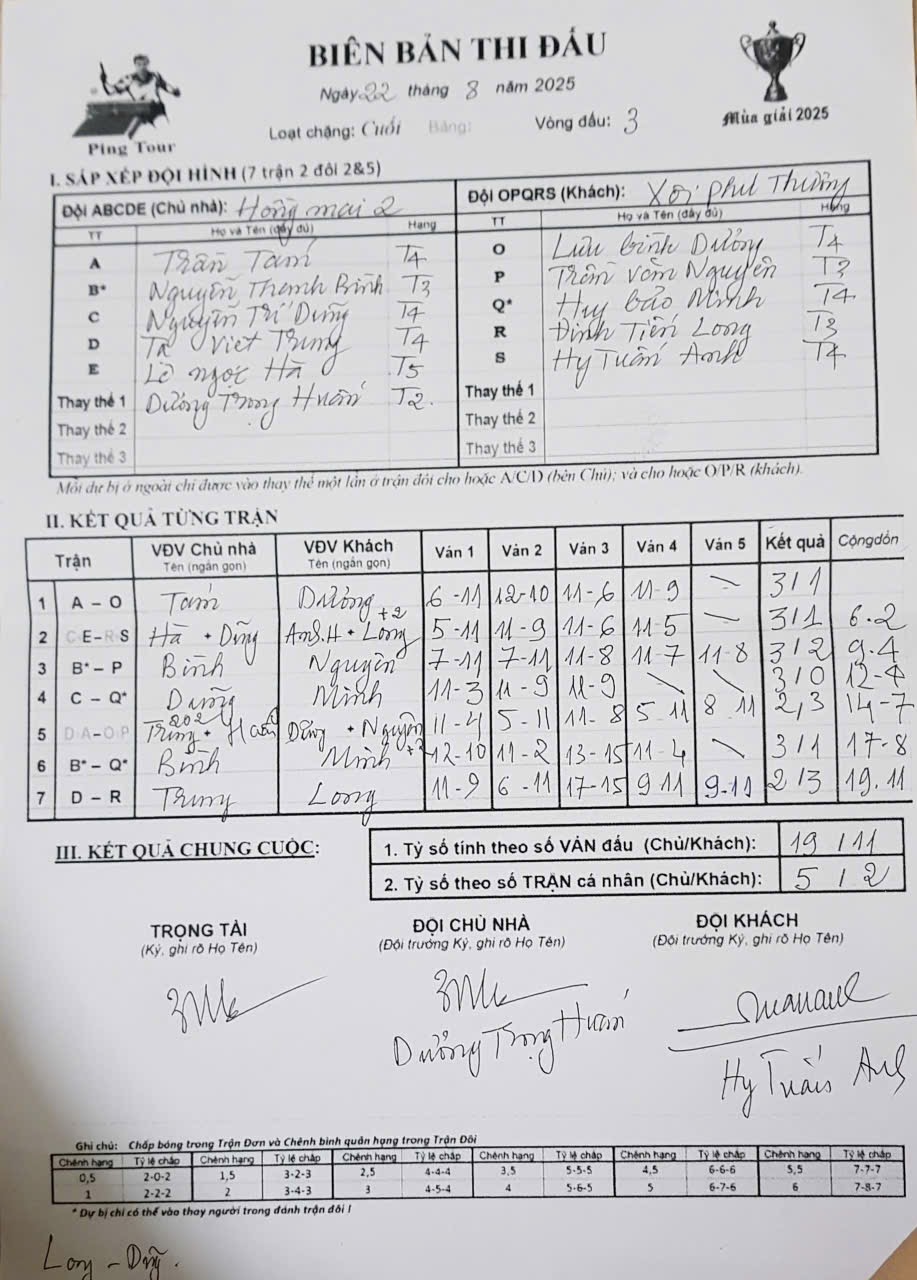 BIÊN BẢN THI ĐẤU
Ngày 22 tháng 8 năm 2025
Loạt chặng: Cuối Bảng: Vòng đấu: 3
Ping Tour
Mùa giải 2025
I. SẮP XẾP ĐỘI HÌNH (7 trận 2 đôi 2&5)
Đội ABCDE (Chủ nhà): Hồng mai 2 Đội OPQRS (Khách): Xôi Phú Thượng
TT Họ và Tên (đầy đủ) Hạng TT Họ và Tên (đầy đủ) Hạng
A Trần Tám T4 O Lưu bình Dương T4
B* Nguyễn Thanh Bình T3 P Trần văn Nguyên T3
C Nguyễn Trí Dũng T4 Q* Huy bảo Minh T4
D Tạ Việt Trung T4 R Đinh Tiến Long T3
E Lê ngọc Hà T5 S Hy Tuấn Anh T4
Thay thế 1 Dương Trọng Huấn T2. Thay thế 1
Thay thế 2 Thay thế 2
Thay thế 3 Thay thế 3
Mỗi dự bị ở ngoài chỉ được vào thay thế một lần ở trận đôi cho hoặc A/C/D (bên Chủ); và cho hoặc O/P/R (khách).
II. KẾT QUẢ TỪNG TRẬN
Trận VĐV Chủ nhà Tên (ngắn gọn) VĐV Khách Tên (ngắn gọn) Ván 1 Ván 2 Ván 3 Ván 4 Ván 5 Kết quả Cộng dồn
1 A – O Tám Dương 6-11 12-10 11-6 11-9 \ 3/1
2 C E – R S Hà + Dũng Anh.H + Long +2 5-11 11-9 11-6 11-5 \ 3/1 6-2
3 B* – P Bình Nguyên 7-11 7-11 11-8 11-7 11-8 3/2 9-4
4 C – Q* Dũng Minh 11-3 11-9 11-9 \ \ 3/0 12-4
5 D A – O P Trung + Huấn 202 Dương + Nguyên 11-4 5-11 11-8 5-11 8 11 2/3 14-7
6 B* – Q* Bình Minh 12-10 11-2 13-15 11-4 \ 3/1 17-8
7 D – R Trung Long 11-9 6-11 17-15 9 11 9-11 2/3 19.11
III. KẾT QUẢ CHUNG CUỘC:
1. Tỷ số tính theo số VÁN đấu (Chủ/Khách): 19 / 11
2. Tỷ số theo số TRẬN cá nhân (Chủ/Khách): 5 / 2
TRỌNG TÀI ĐỘI CHỦ NHÀ ĐỘI KHÁCH
(Ký, ghi rõ Họ Tên) (Đội trưởng Ký, ghi rõ Họ Tên) (Đội trưởng Ký, ghi rõ Họ Tên)
Dương Trọng Huấn
Hy Tuấn Anh
Ghi chú: Chấp bóng trong Trận Đơn và Chênh bình quân hạng trong Trận Đôi
Chênh hạng Tỷ lệ chấp Chênh hạng Tỷ lệ chấp Chênh hạng Tỷ lệ chấp Chênh hạng Tỷ lệ chấp Chênh hạng Tỷ lệ chấp Chênh hạng Tỷ lệ chấp
0,5 2-0-2 1,5 3-2-3 2,5 4-4-4 3,5 5-5-5 4,5 6-6-6 5,5 7-7-7
1 2-2-2 2 3-4-3 3 4-5-4 4 5-6-5 5 6-7-6 6 7-8-7
* Dự bị chỉ có thể vào thay người trong đánh trận đôi !
Long – Dũng.